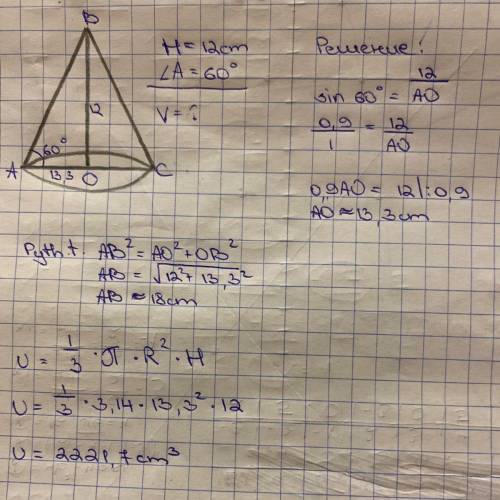 B
H = 12cm
∠A = 60°
V = ?
12
60°
A
13,3
O
C
Решение:
sin 60° = 12/AO
0,9/1 = 12/AO
0,9AO = 12 |:0,9
AO ≈ 13,3cm
Pyth t. AB² = AO² + OB²
AB = √12² + 13,3²
AB ≈ 18cm
U = 1/3 · П · R² · H
U = 1/3 · 3,14 · 13,3² · 12
U = 2221,7 cm³